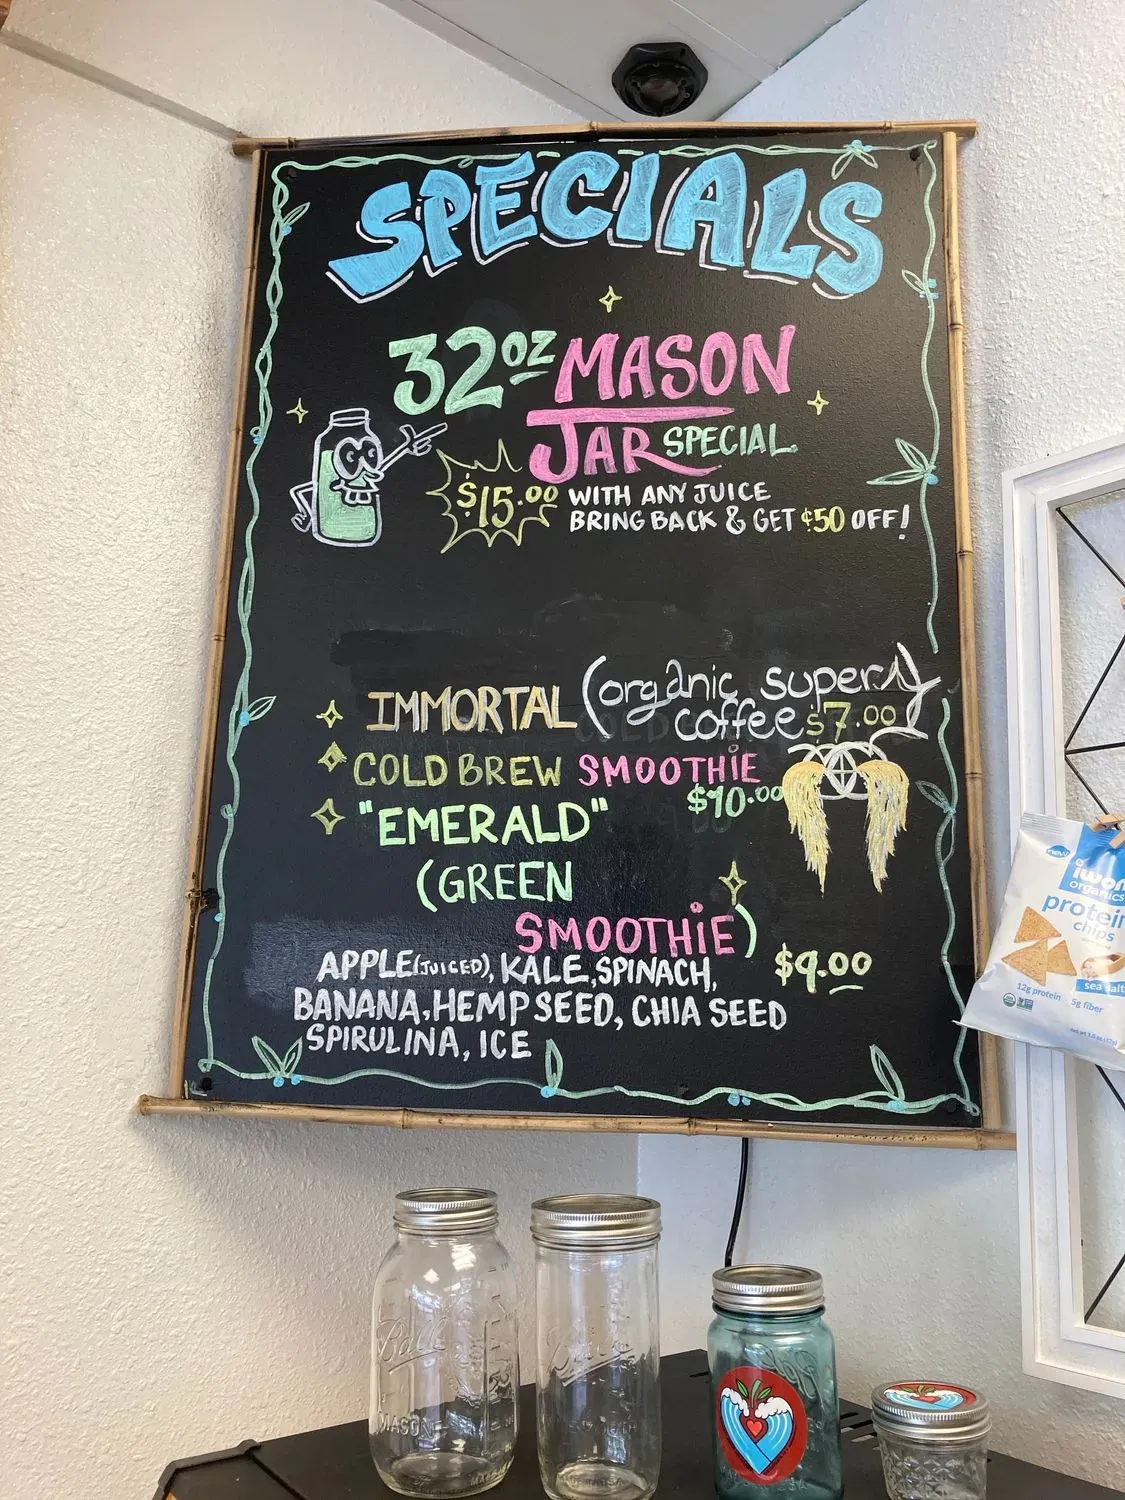 SPECIALS
32OZ MASON
JAR SPECIAL
$15.00 WITH ANY JUICE
BRING BACK & GET ¢50 OFF!
IMMORTAL (organic super
coffee $7.00)
COLD BREW SMOOTHiE
$10.00
"EMERALD"
(GREEN
SMOOTHiE)
$9.00
APPLE(JUICED), KALE, SPINACH,
BANANA, HEMP SEED, CHIA SEED
SPIRULINA, ICE
new
organics
protein
chips
sea salt
12g protein
5g fiber
Ball
MASON